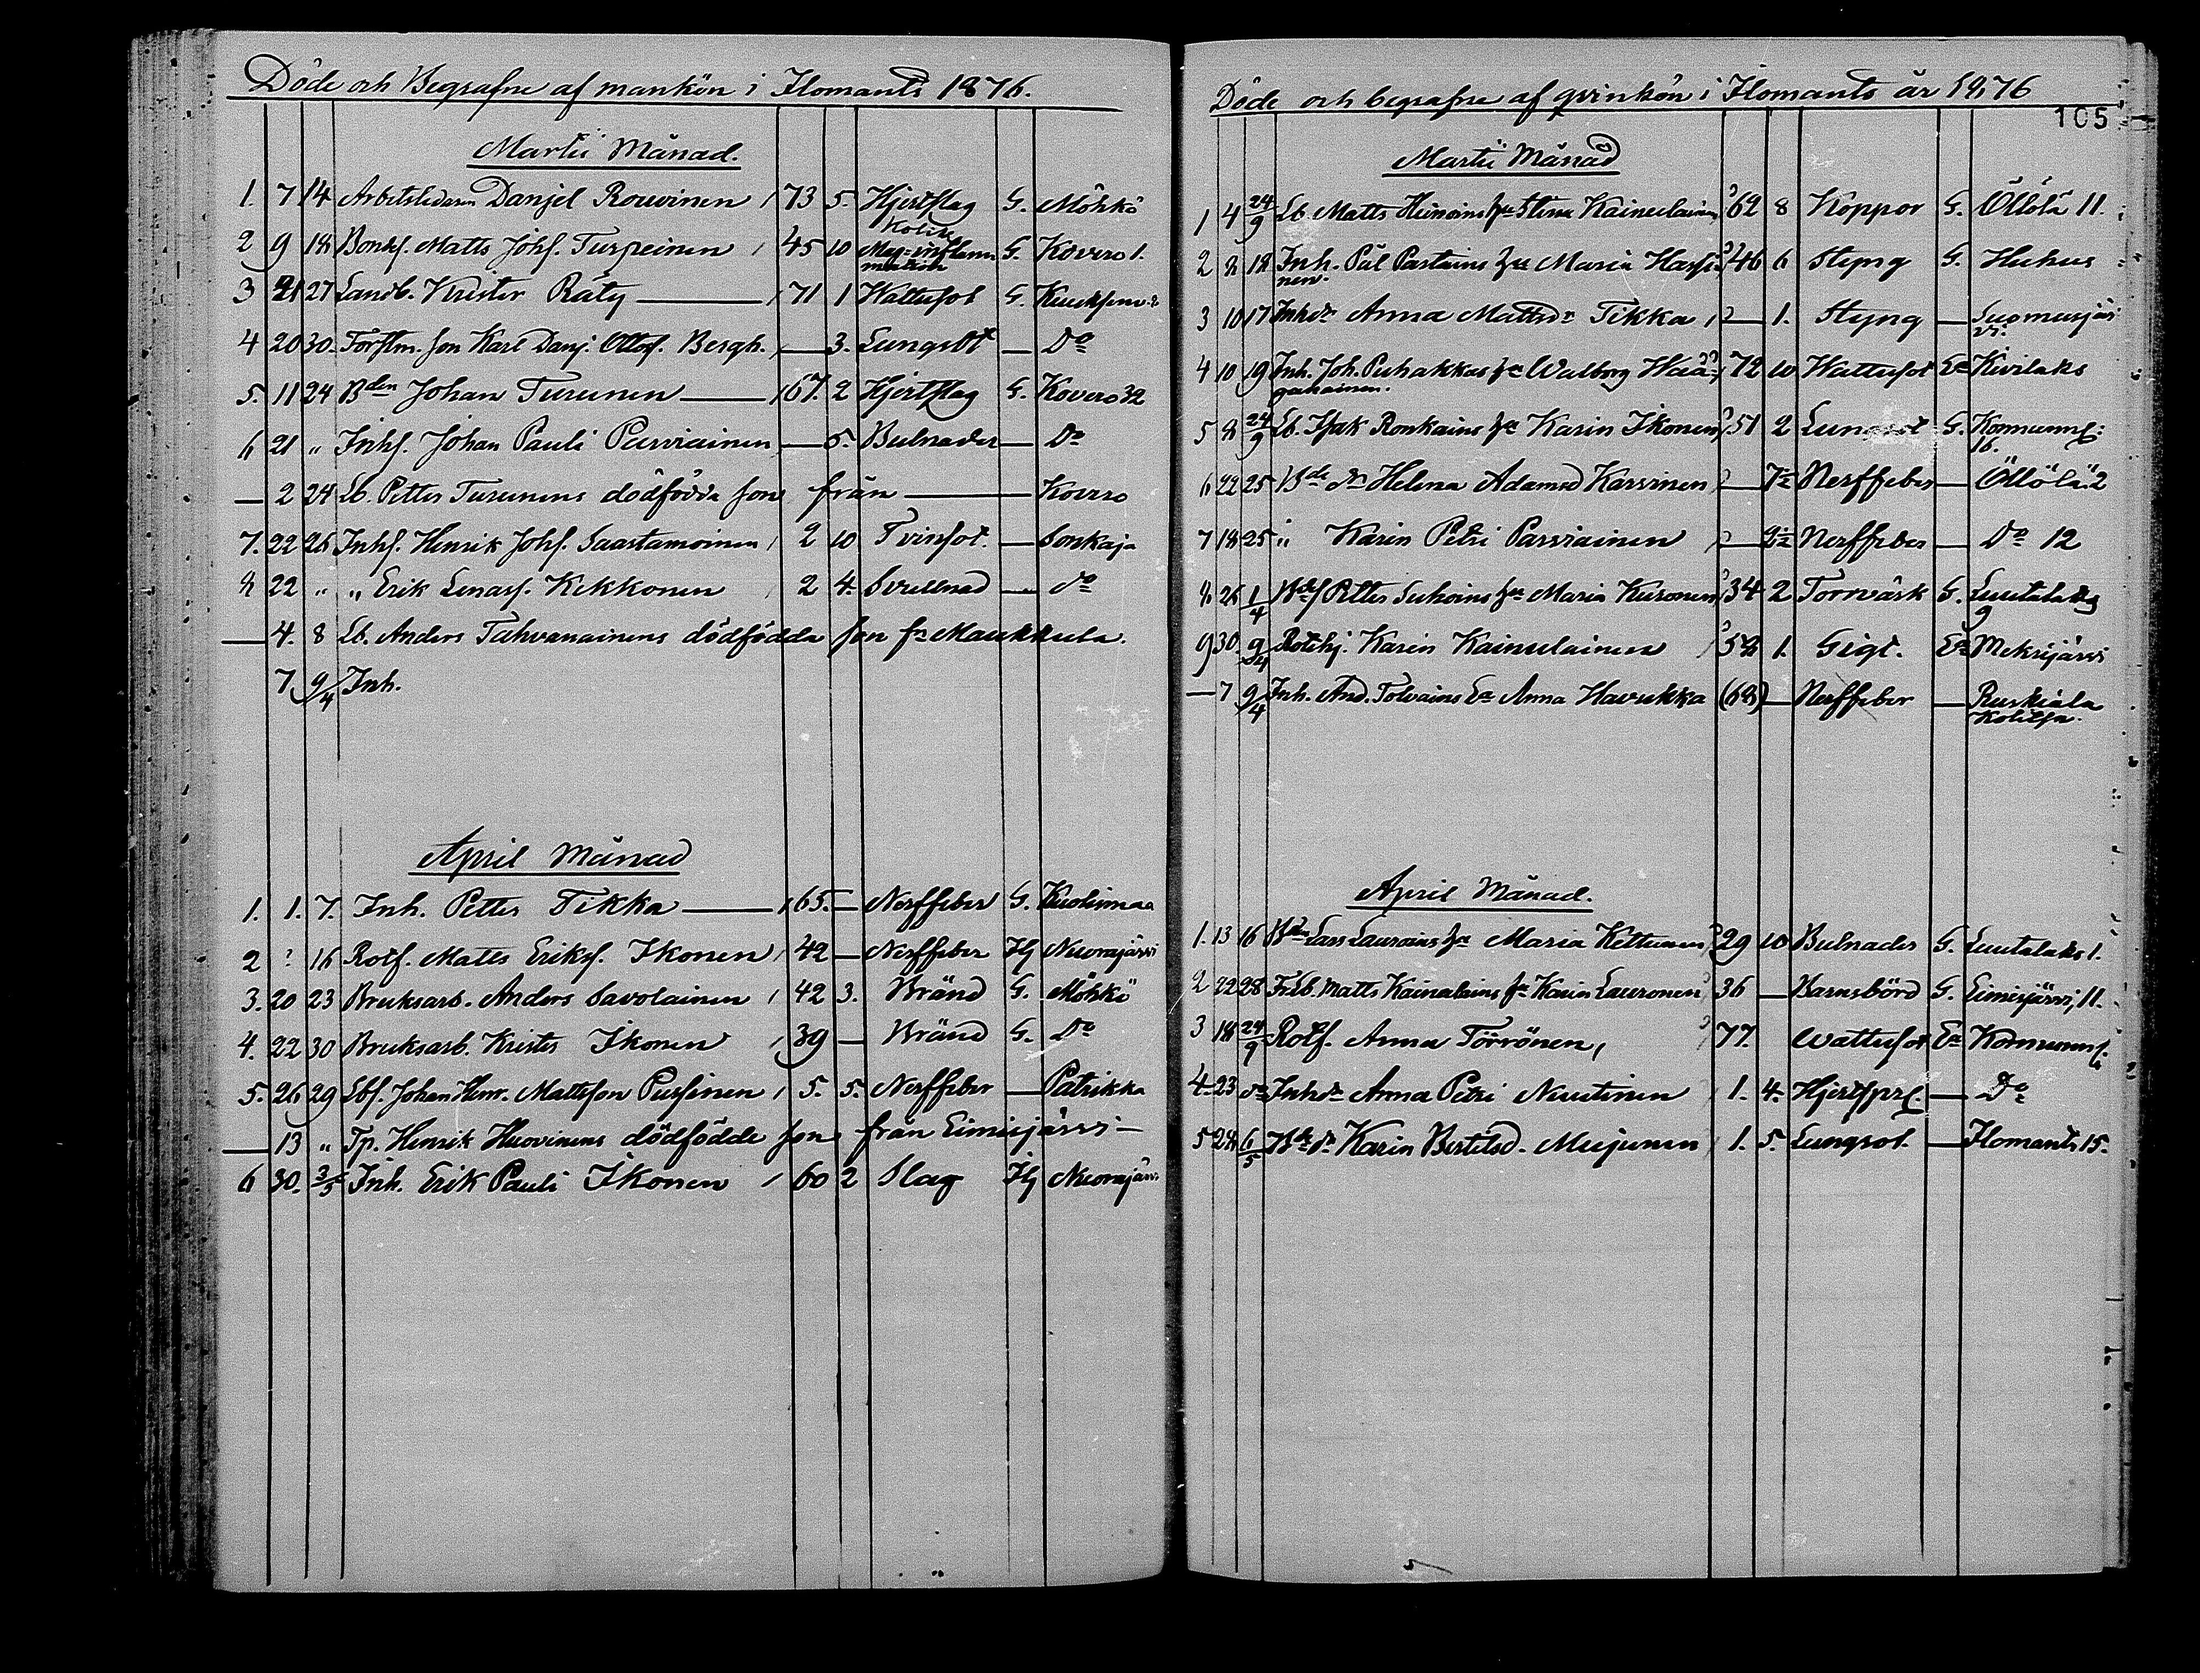 Döde och Begrafne af mankön i Ilomants 1876.
Martii Månad.
1. 7 14 Arbetsledaren Danjel Rouvinen 73 5. Hjertslag G. Möhkö
2 9 18 Bonds. Matts Johs. Turpeinen 45 10 Kolik G. Kovero 1.
3 21 27 Landb. Krister Räty 71 1 Wattusot G.
4 20 30. Forstm. son Karl Danj. Ottos. Bergh. — 3. Lungsot — Do
5. 11 24 Bden Johan Turunen 67. 2 Hjertslag G. Kovero 32
6 21 „ Inhs. Johan Pauli Parviainen — 5. Bulnader — Do
— 2 24 Lb. Petter Turunens dödfödda son från — Kovero
7. 22 26 Inhs. Henrik Johs. Saastamoinen 2 10 Tvinsot. — Sonkaja
8 22 „ „ Erik Lenas. Kekkonen 2 4. Svullnad — do
— 4. 8 Lb. Anders Tahvanainens dödfödda son fr Maukkula.
7 9/4 Inh.
April Månad
1. 1. 7. Inh. Petter Tikka 65. — Nerffeber G. Kuolismaa
2 ? 16 Rotf. Matts Eriks. Ikonen 42 — Nerffeber Hj Nuorajärvi
3. 20 23 Bruksarb. Anders Savolainen 42 3. Bränd G. Möhkö
4. 22 30 Bruksarb. Krister Ikonen 39 — Bränd G. Do
5. 26 29 Lbs. Johan Henr. Mattsson Pussinen 5. 5. Nerffeber — Patrikka
— 13 „ Tp. Henrik Huovinens dödfödde son från Eimisjärvi —
6 30. 3/5 Inh. Erik Pauli Ikonen 60 2 Slag Hj Nuorajärvi
Döde och begrafne af qvinkön i Ilomants år 1876
105
Martii Månad
1 4 24/9 Lb. Matts hu Stina Kainulainen 62 8 Koppor G. Öllölä 11.
2 8 12 Inh. Pål Partains hu Maria Hassi-
nen. 46 6 Styng G. Huhus
3 10 17 Inhdr Anna Mattsdr Tikka — 1. Styng — Luomusjär
vi.
4 10 19 Inh. Joh. Puhakkas hu Walborg 72 10 Wattusot Ea Kivilaks
5 8 24/9 Lb. Isak Ronkains hu Karin Ikonen 51 2 Lungsot G.
16.
6 22 25 Bde dr Helena Adamsd Karvinen — 7 1/2 Nerffeber — Öllölä 2
7 18 25 „ Karin Petri Parviainen — Nerffeber — Do 12
8 26 1/4 Petter Suhoins hu Maria Kuronen 34 2 Torrvärk G. Luutalaks
9
9 30. 9/4 Rotehj. Karin Kainulainen 58 1. Gigt. Ea Mekrijärvi
— 7 9/4 Inh. And. Tolvains Ea Anna Havukka (68) — Nerffeber — Ruskiala
April Månad.
1. 13 16 Bden Lars Laurains hu Maria Kettunen 29 10 Bulnader G. Luutalaks 1.
2 22 28 Matts Kainulains hu Karin Lauronen 36 — Barnsbörd G. Eimisjärvi 11.
3 18 24/9 Rotf. Anna Törrönen, 77. Wattusot Ea
4. 23 do Inhdr Anna Petri Nuutinen 1. 4. — Do
5 28 6/5 Bde dr Karin Bertilsd. Mujunen 1. 5. Lungsot — Ilomants 15.